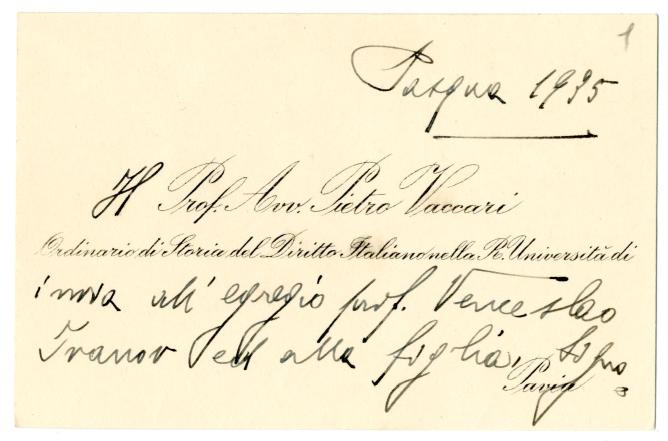 1
Pasqua 1935
Il Prof. Avv. Pietro Vaccari
Ordinario di Storia del Diritto Italiano nella R. Università di
invia all'egregio prof. Venceslao
Ivanov ed alla figlia, Signo=
Pavia